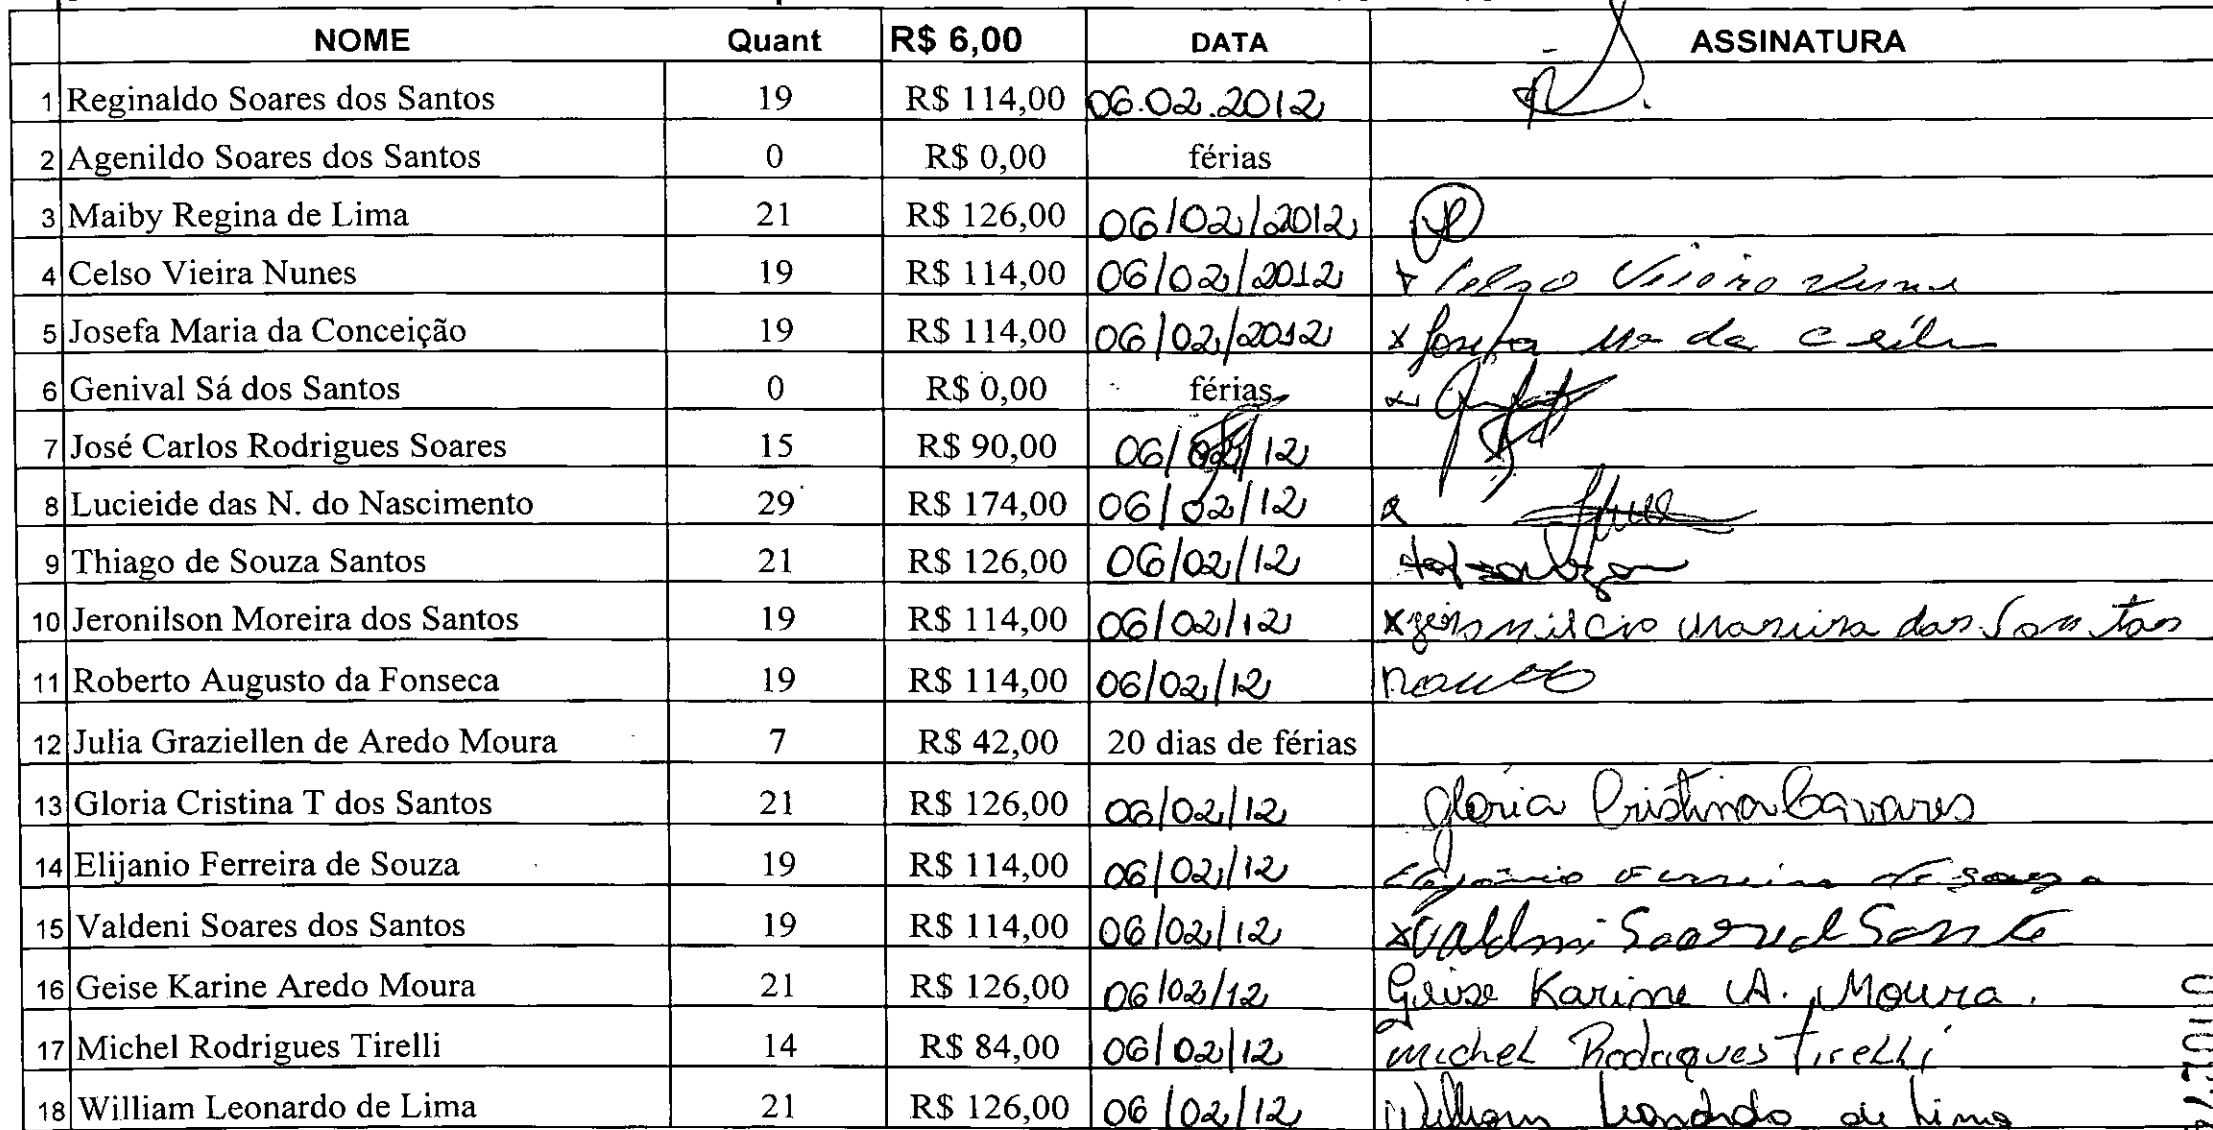 NOME Quant R$ 6,00 DATA ASSINATURA
1 Reginaldo Soares dos Santos 19 R$ 114,00 06.02.2012
2 Agenildo Soares dos Santos 0 R$ 0,00 férias
3 Maiby Regina de Lima 21 R$ 126,00 06/02/2012
4 Celso Vieira Nunes 19 R$ 114,00 06/02/2012 x Celso Vieira Nunes
5 Josefa Maria da Conceição 19 R$ 114,00 06/02/2012 x Josefa Mª da
6 Genival Sá dos Santos 0 R$ 0,00 férias
7 José Carlos Rodrigues Soares 15 R$ 90,00 06/02/12
8 Lucieide das N. do Nascimento 29 R$ 174,00 06/02/12
9 Thiago de Souza Santos 21 R$ 126,00 06/02/12
10 Jeronilson Moreira dos Santos 19 R$ 114,00 06/02/12 x
11 Roberto Augusto da Fonseca 19 R$ 114,00 06/02/12
12 Julia Graziellen de Aredo Moura 7 R$ 42,00 20 dias de férias
13 Gloria Cristina T dos Santos 21 R$ 126,00 06/02/12 Gloria Cristina Tavares
14 Elijanio Ferreira de Souza 19 R$ 114,00 06/02/12 Elijanio Ferreira de Souza
15 Valdeni Soares dos Santos 19 R$ 114,00 06/02/12 x Valdeni
16 Geise Karine Aredo Moura 21 R$ 126,00 06/02/12 Geise Karine A. Moura.
17 Michel Rodrigues Tirelli 14 R$ 84,00 06/02/12 Michel Rodrigues Tirelli
18 William Leonardo de Lima 21 R$ 126,00 06/02/12 William Leonardo de Lima